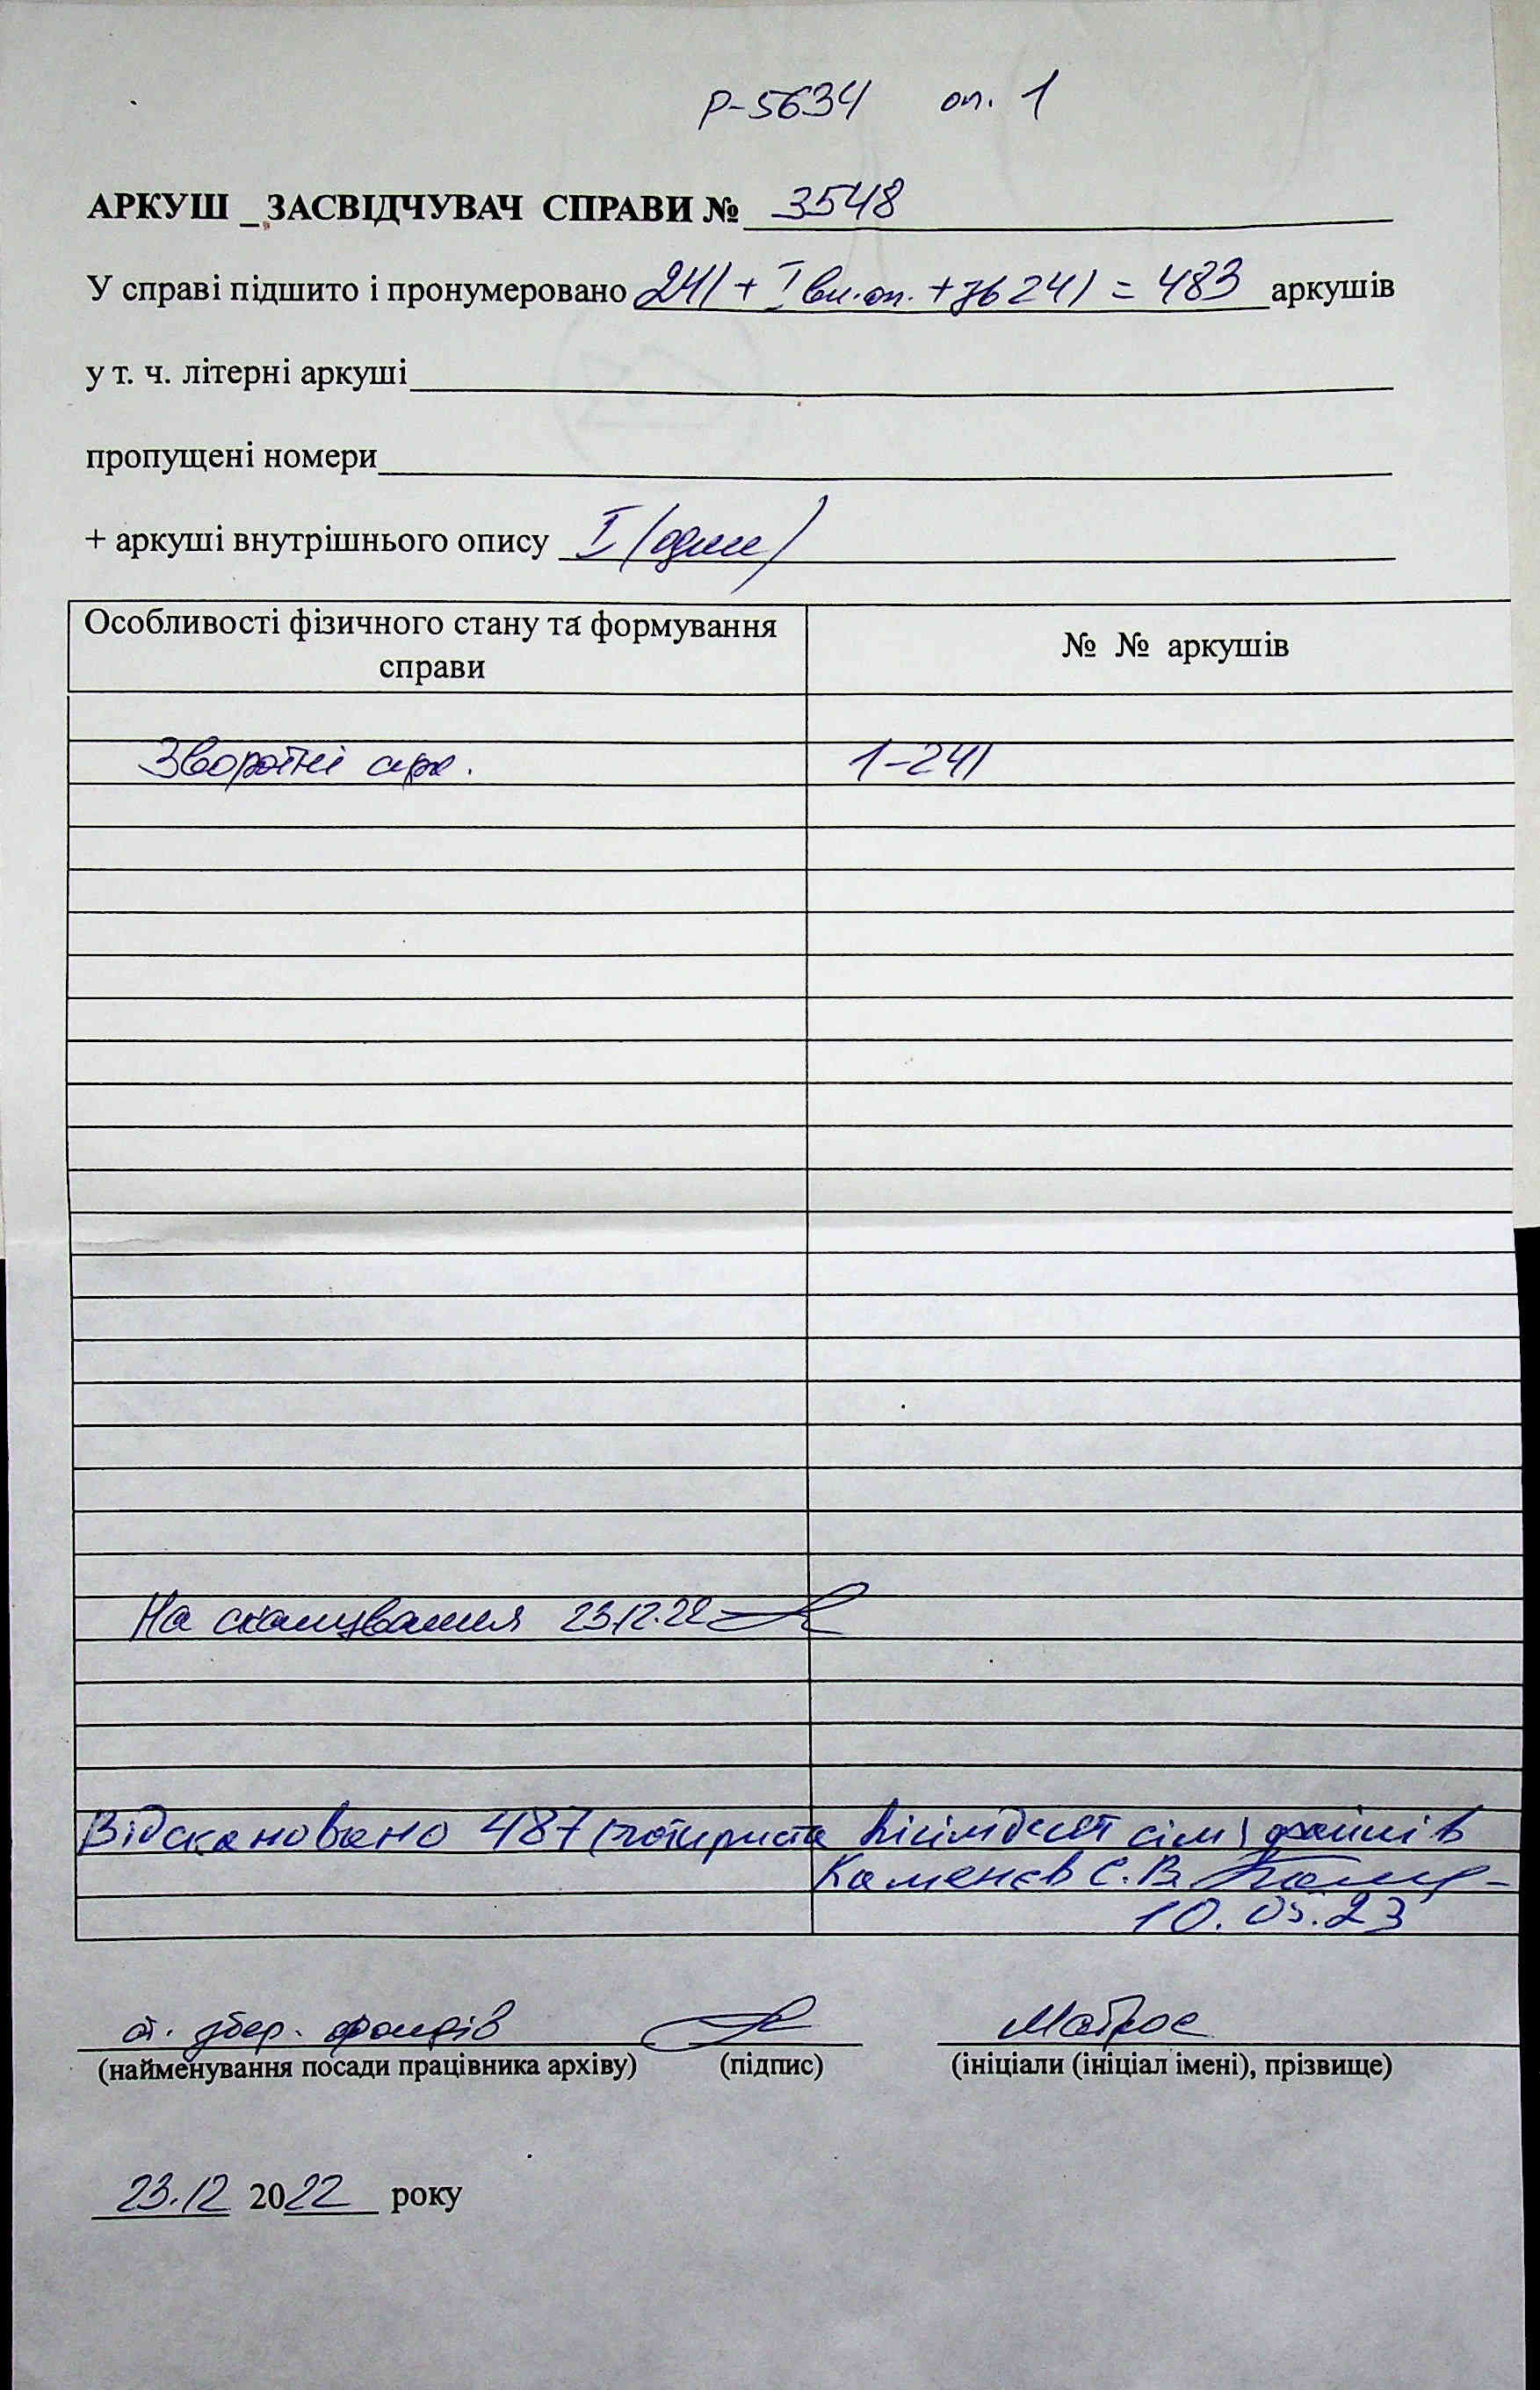 Р-5634 оп. 1
АРКУШ _ ЗАСВІДЧУВАЧ СПРАВИ № 3548
У справі підшито і пронумеровано 241 + I вн.оп. + зв 241 = 483 аркушів
у т. ч. літерні аркуші
пропущені номери
+ аркуші внутрішнього опису I (один)
Особливості фізичного стану та формування справи
№ № аркушів
Зворотні арк. 1-241
На сканування 23.12.22
Відскановано 487 (чотириста вісімдесят сім) файлів
Каменєв С.В.
10.05.23
ст. збер. фондів Матрос
(найменування посади працівника архіву) (підпис) (ініціали (ініціал імені), прізвище)
23.12 2022 року